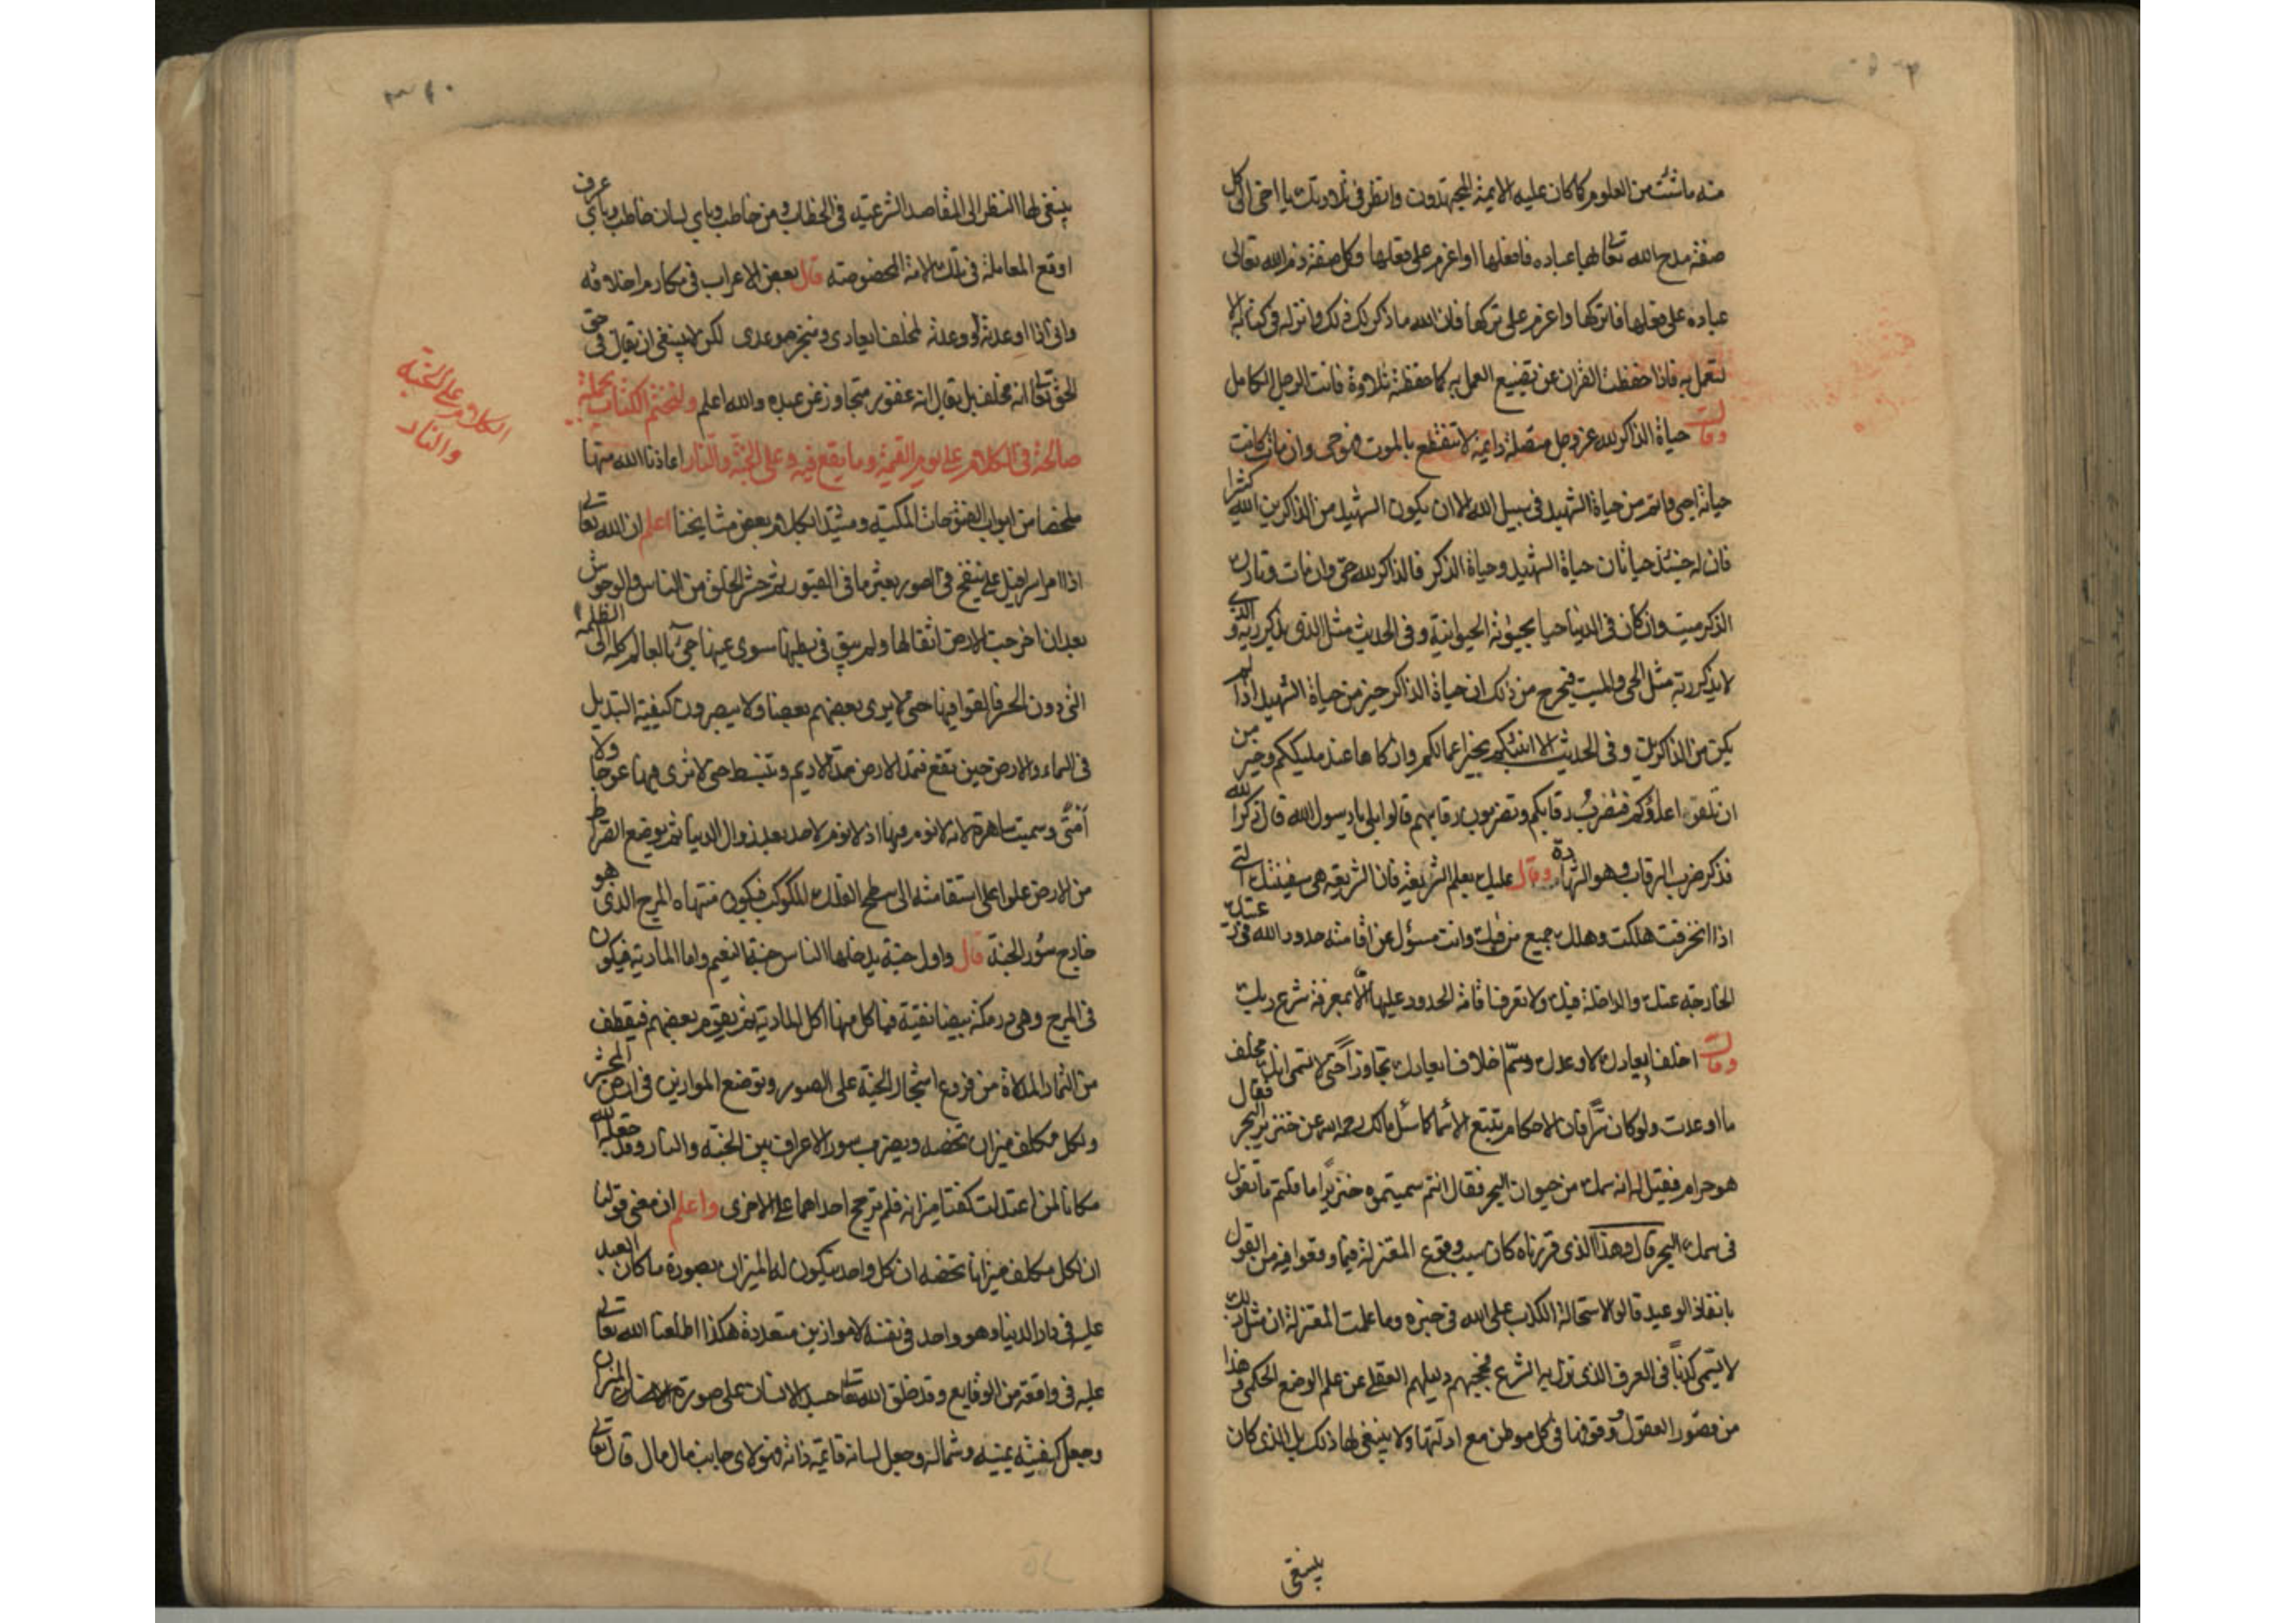 منه ما شئت من العلوم كما كان عليه الائمة المجتهدون وانظر فى تلاوتك يا اخى الى كل
صفة مدح الله تعالى بها عباده فافعلها او اعزم على فعلها وكل صفة ذم الله تعالى
عباده على فعلها فاتركها واعزم على تركها فان الله ما ذكر لك ذلك وانزله فى كتابه الا
لتعمل به فاذا حفظت القران عن تضييع العمل به كما حفظته تلاوة فانت الرجل الكامل
وقال حياة الذاكر لله عز وجل متصلة دايمة لا تنقطع بالموت فهو حى وان مات كانت
حياته احيى واتم من حياة الشهيد فى سبيل الله الا ان يكون الشهيد من الذاكرين الله كثيرا
فان له حينئذ حياتان حياة الشهيد وحياة الذكر فالذاكر لله حى وان مات وتارك
الذكر ميت وان كان فى الدنيا حيا بحيوته الحيوانية وفى الحديث مثل الذى يذكر ربه والذى
لا يذكر ربه مثل الحى والميت فيخرج من ذلك ان حياة الذاكر خير من حياة الشهيد اذا لم
يكن من الذاكرين وفى الحديث الا انبئكم بخير اعمالكم وازكاها عند مليككم وخير من
ان تلقوا عدوكم فتضرب رقابكم وتضربون رقابهم قالوا بلى يا رسول الله قال ذكر الله
فذكر ضرب الرقاب وهو الشهادة وقال عليك بعلم الشريعة فان الشريعة هى سفينتك التى
اذا انخرقت هلكت وهلك جميع من فيها وانت مسؤل عن اقامة حدود الله فى رعيتك
الخارجة عنك والداخلة فيك ولا تعرف اقامة الحدود عليها الا بمعرفة شرع ربك
وقال اخلف ايعادك لا وعدك وسم اخلاف ايعادك تجاوزا حتى لا تسمى انك مخلف
ما اوعدت ولو كان شرا فان الاحكام تتبع الاسما كما سئل مالك رحمه الله عن خنزير البحر فقال
هو حرام فقيل له انه سمك من حيوان البحر فقال انتم سميتموه خنزيرا ما قلتم ما تقول
فى سمك البحر قال وهذا الذى قررناه كان سبب وقوع المعتزلة فيما وقعوا فيه من القول
بانفاذ الوعيد قالوا لاستحالة الكذب على الله فى خبره وما علمت المعتزلة ان مثل ذلك
لا يسمى كذبا فى العرف الذى نزل به الشرع فحجبهم دليلهم العقلى عن علم الوضع الحكمى وهذا
من قصور العقول ووقوفها فى كل موطن مع ادلتها ولا ينبغى لها ذلك بل الذى كان
ينبغى
ينبغى لها النظر الى المقاصد الشرعية فى الخطاب ومن خاطب وباى لسان خاطب وباى عرف
اوقع المعاملة فى تلك الامة المخصوصة قال بعض الاعراب فى مكارم اخلاقه
وانى اذا اوعدته او وعدته لمخلف ايعادى ومنجز موعدى لكن لا ينبغى ان يقال فى حق
الحق تعالى انه مخلف بل يقال انه عفو متجاوز عن عبده والله اعلم ولنختم الكتاب بجملة
صالحة فى الكلام على يوم القيمة وما يقع فيه وعلى الجنة والنار اعاذنا الله منها
ملخصا من ابواب الفتوحات المكية ومشيدا بكلام بعض مشايخنا اعلم ان الله تعالى
اذا امر اسرافيل ينفخ فى الصور بعثر ما فى القبور ثم حشر الخلق من الناس والوحوش
بعد ان اخرجت الارض اثقالها ولم يبق فى بطنها سوى عينها جئ بالعالم كله الى الظلمة
التى دون الجسر فالقوا فيها حتى لا يرى بعضهم بعضا ولا يبصرون كيفية التبديل
فى السماء والارض حين تقع فتمد الارض مد الاديم وتنبسط حتى لا ترى فيها عوجا ولا
امتى وسميت ساهرة لانه لا نوم فيها اذ لا نوم لاحد بعد زوال الدنيا ثم يوضع الصراط
من الارض علوا على استقامته الى سطح الفلك المكوكب فيكون منتهاه المرج الذى هو
خارج سور الجنة قال واول جنة يدخلها الناس جنة النعيم واما المادبة فيكون
فى المرج وهى درمكة بيضا نقية فياكل منها اكل المادبة ثم يقوم بعضهم فيقطف
من الثمار المدلاة من فروع اشجار الجنة على السور وتوضع الموازين فى ارض المحشر
ولكل مكلف ميزان تخصه ويضرب سور الاعراف بين الجنة والنار وقد جعله الله
مكانا لمن اعتدلت كفتا ميزانه فلم ترجح احداهما على الاخرى واعلم ان معنى قولنا
ان لكل مكلف ميزانا تخصه ان كل واحد يكون له الميزان بصورة ما كان العبد
عليه فى دار الدنيا وهو واحد فى نفسه لا موازين متعددة هكذا اطلعنا الله تعالى
عليه فى واقعة من الوقايع وقد خلق الله تعالى جسد الانسان على صورة الميزان
وجعل كفتيه يمينه وشماله وجعل لسانه قائمة ذاته فهو لاى جانب مال مال قال تعالى
الكلام على الجنة
والنار